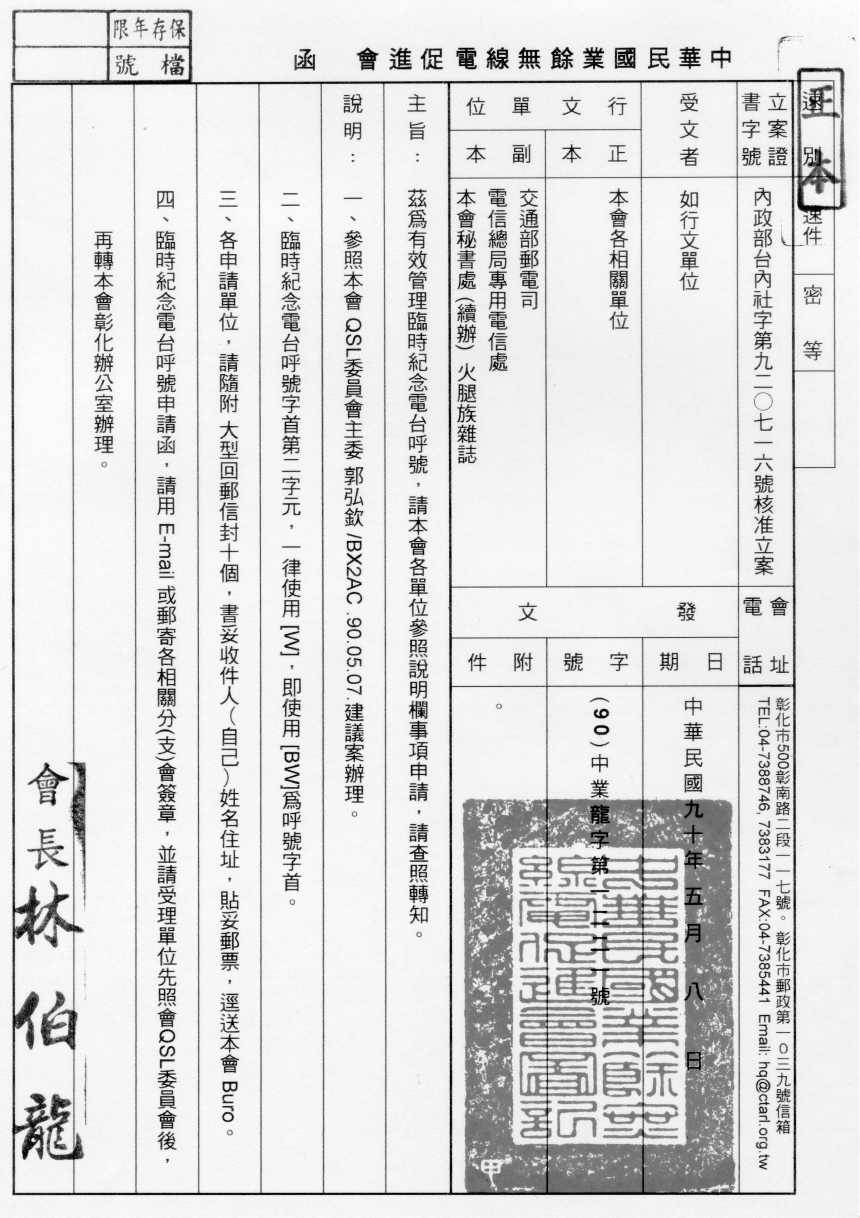 中華民國業餘無線電促進會　函
保存年限
檔號
正本
速別
速件
密等
立案證書字號
內政部台內社字第九二〇七一六號核准立案
會址電話
彰化市500彰南路二段一一七號。彰化市郵政第一0三九號信箱
TEL:04-7388746, 7383177 FAX:04-7385441 Email: hq@ctarl.org.tw
受文者
如行文單位
行文單位
正本
本會各相關單位
副本
交通部郵電司
電信總局專用電信處
本會秘書處(續辦) 火腿族雜誌
發文
日期
中華民國九十年五月八日
字號
(90)中業龍字第
號
附件
。
主旨：茲爲有效管理臨時紀念電台呼號，請本會各單位參照說明欄事項申請，請查照轉知。
說明：一、參照本會 QSL委員會主委 郭弘欽 /BX2AC .90.05.07.建議案辦理。
二、臨時紀念電台呼號字首第二字元，一律使用 [W]，即使用 [BW]爲呼號字首。
三、各申請單位，請隨附 大型回郵信封十個，書妥收件人(自己)姓名住址，貼妥郵票，逕送本會 Buro。
四、臨時紀念電台呼號申請函，請用 E-mail 或郵寄各相關分(支)會簽章，並請受理單位先照會QSL委員會後，
再轉本會彰化辦公室辦理。
會長林伯龍
甲